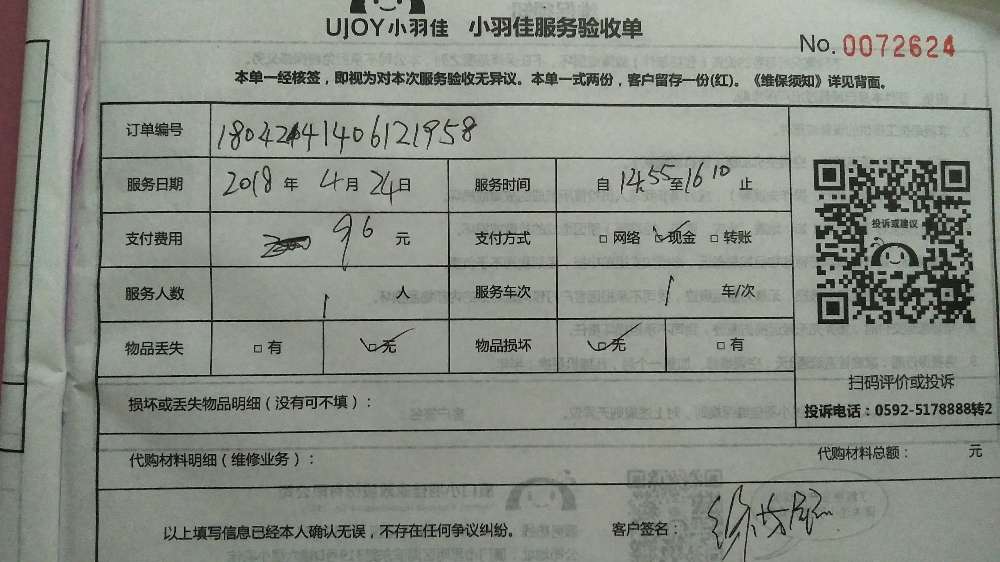 UJOY小羽佳 小羽佳服务验收单
No. 0072624
本单一经核签，即视为对本次服务验收无异议。本单一式两份，客户留存一份(红)。《维保须知》详见背面。
订单编号 1804241406121958
服务日期 2018 年 4 月 24 日 服务时间 自 14:55 至 16 10 止
支付费用 96 元 支付方式 □ 网络 ☑ 现金 □ 转账
服务人数 1 人 服务车次 1 车/次
物品丢失 □ 有 ☑ 无 物品损坏 ☑ 无 □ 有
投诉或建议
扫码评价或投诉
投诉电话：0592-5178888转2
损坏或丢失物品明细（没有可不填）：
代购材料明细（维修业务）： 代购材料总额： 元
以上填写信息已经本人确认无误，不存在任何争议纠纷。 客户签名：